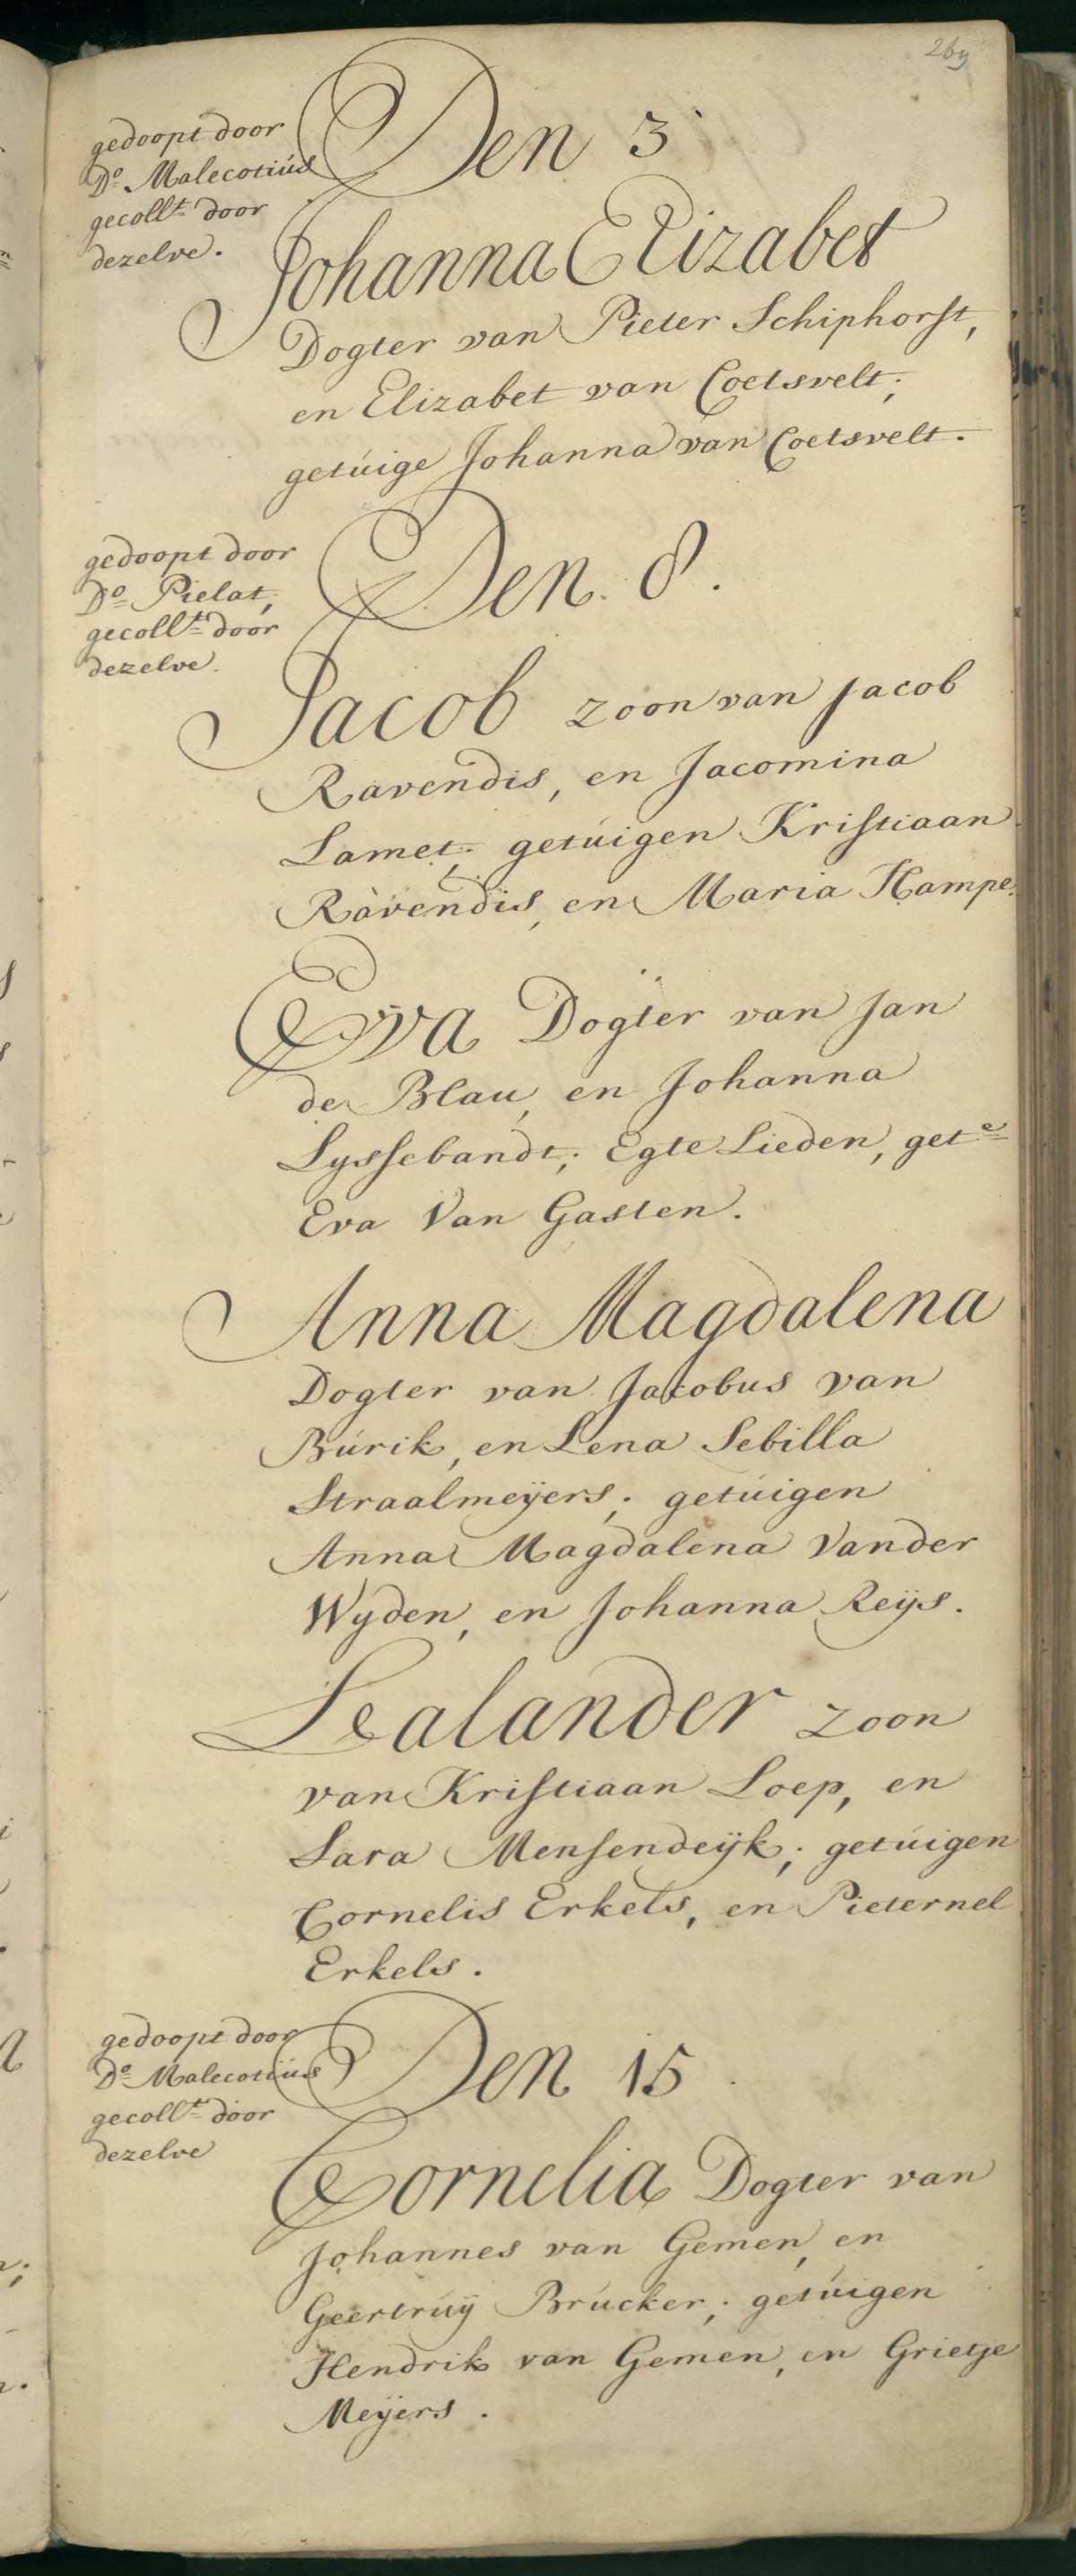 269
gedoopt door
Do Malecotiús
gecollt door
dezelve.
Den 3
Johanna Elizabet
Dogter van Pieter Schiphorst,
en Elizabet van Coetsvelt;
getúige Johanna van Coetsvelt.
gedoopt door
Do Pielat,
gecollt door
dezelve.
Den. 8.
Jacob zoon van Jacob
Ravendis, en Jacomina
Lamet; getúigen Kristiaan
Ravendis, en Maria Hampe.
Eva Dogter van Jan
de Blau, en Johanna
Lyssebandt; Egte Lieden, gete
Eva Van Gasten.
Anna Magdalena
Dogter van Jacobus van
Búrik, en Lena Sebilla
Straalmeÿers; getúigen
Anna Magdalena Vander
Wyden, en Johanna Reÿs.
Lealander zoon
van Kristiaan Loep, en
Sara Mensendeÿk; getúigen
Cornelis Erkels, en Pieternel
Erkels.
gedoopt door
Do Malecotiús
gecollt door
dezelve
Den 15
Cornelia Dogter van
Johannes van Gemen, en
Geertrúÿ Brúcker; getúigen
Hendrik van Gemen, en Grietje
Meÿers.